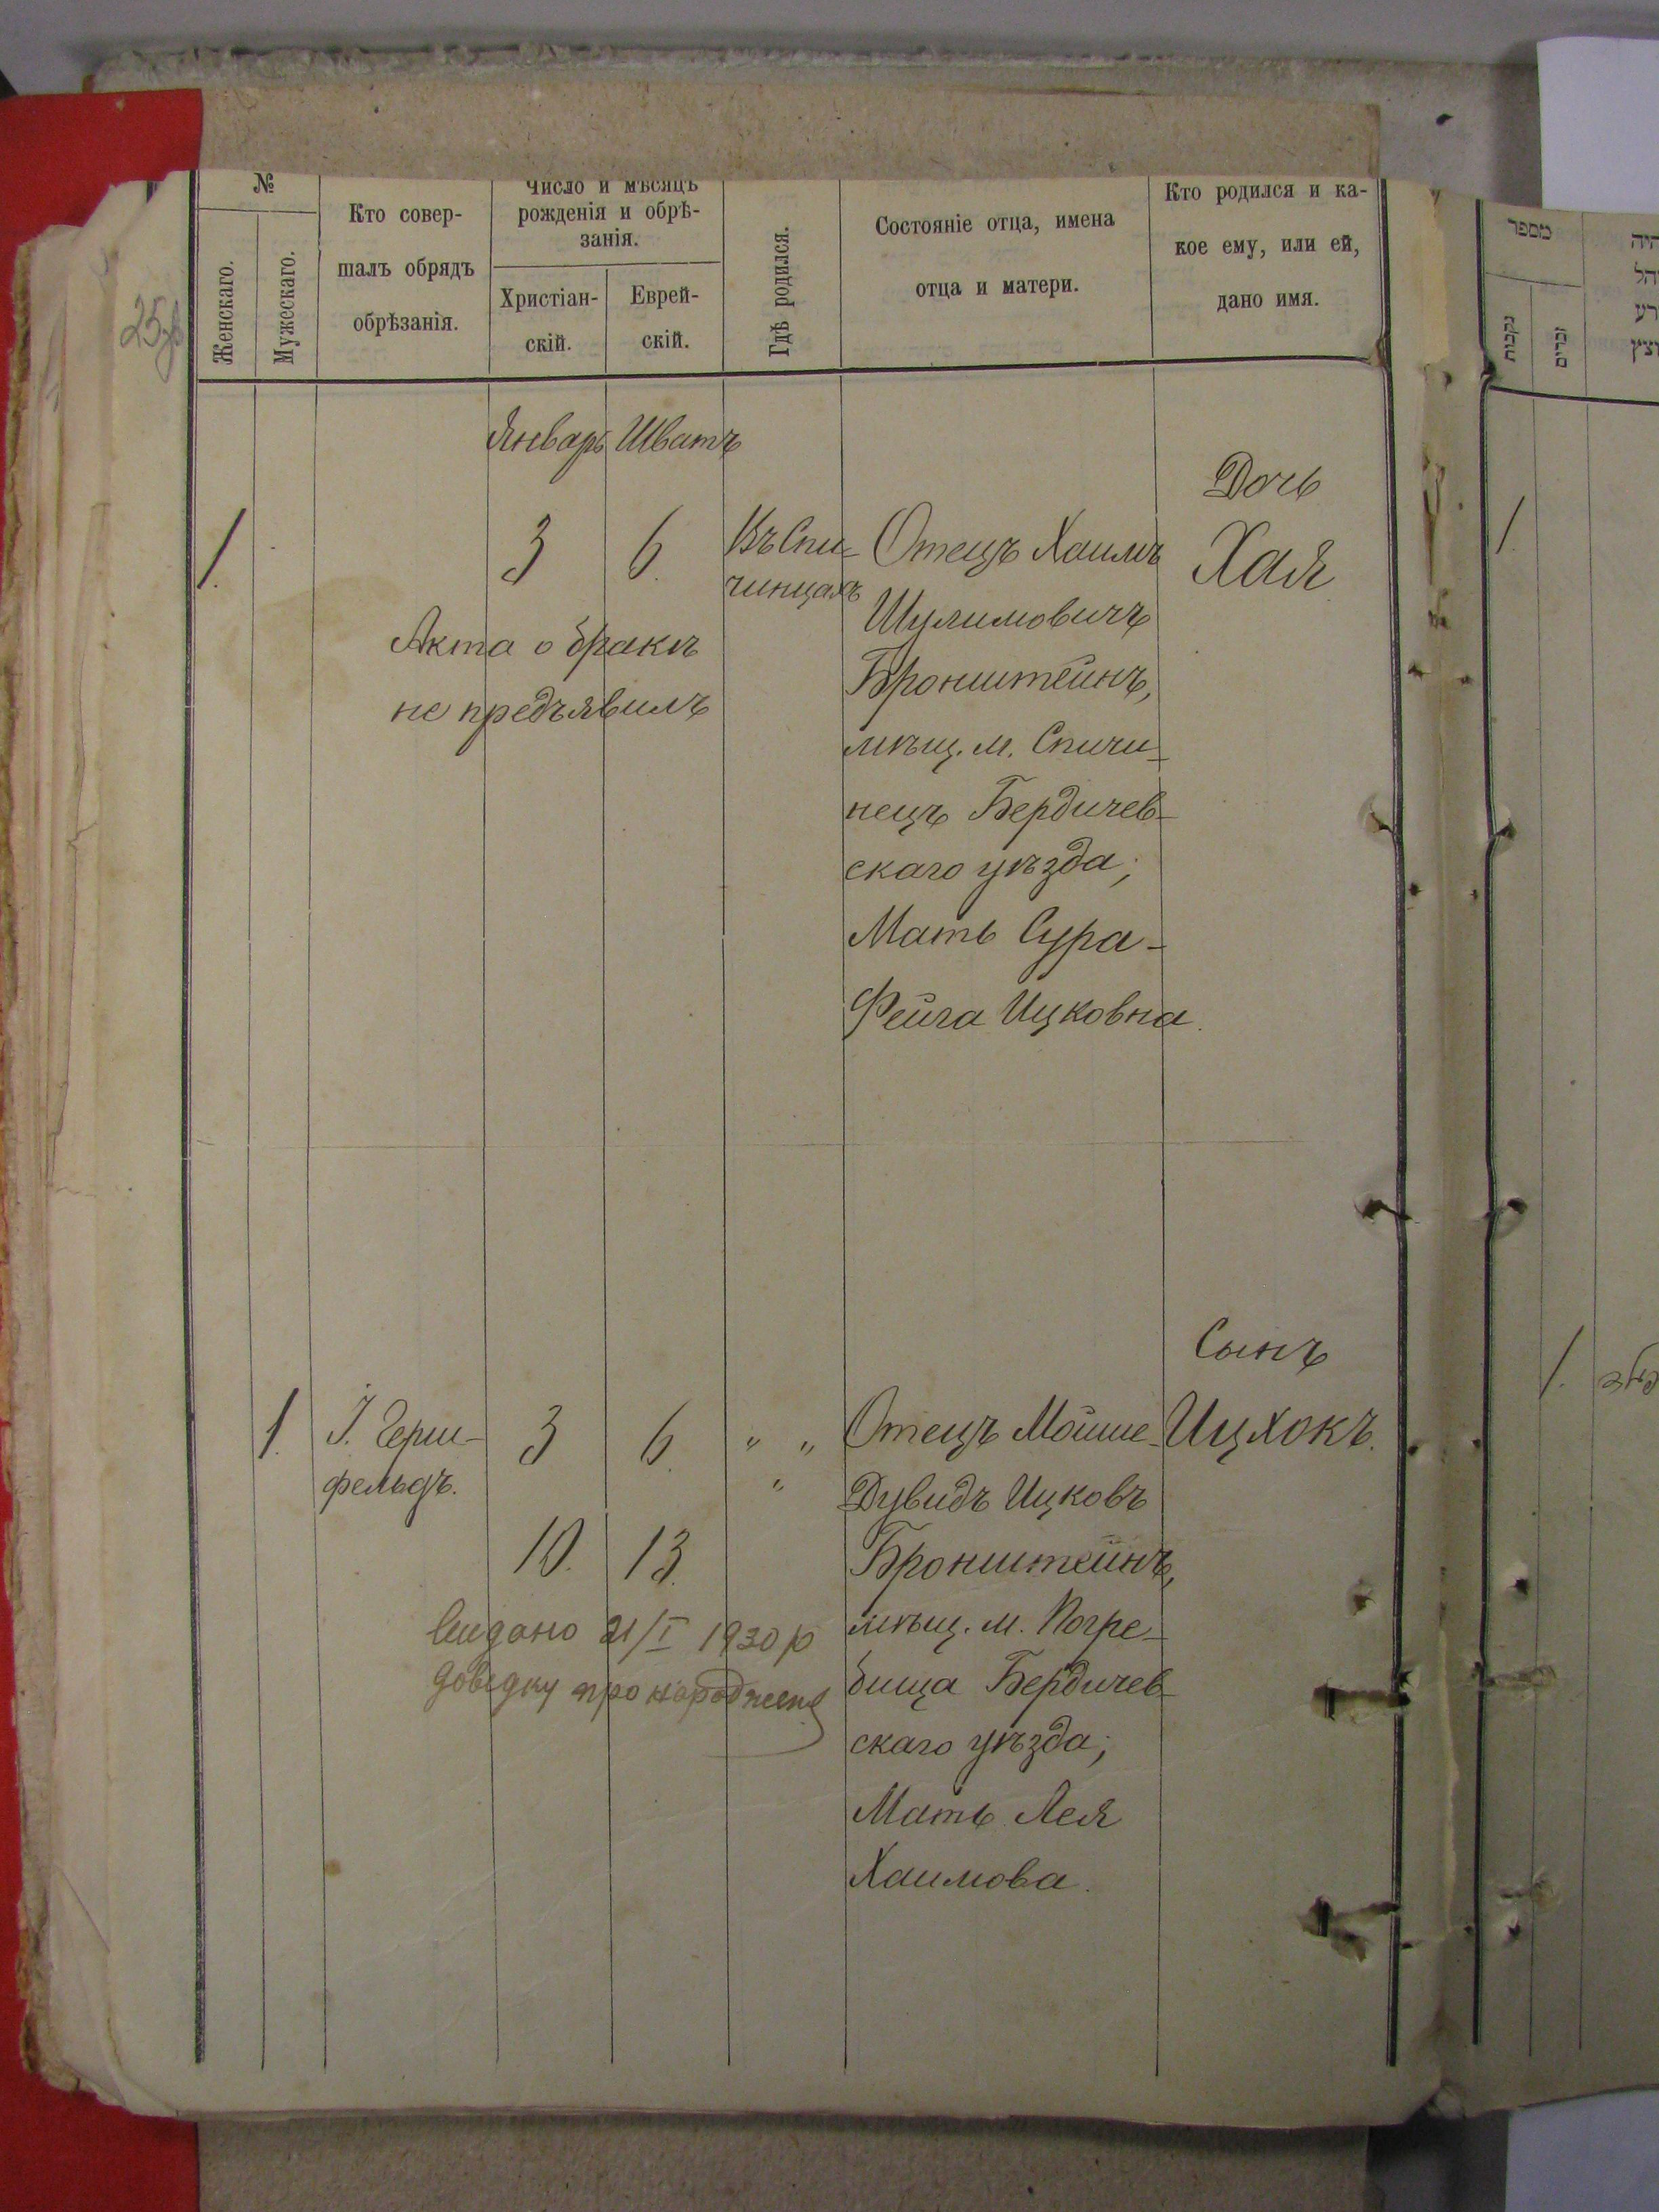 №
Женскаго.
Мужескаго.
Кто совер-
шалъ обрядъ
обрѣзанія.
Число и мѣсяцъ
рожденія и обрѣ-
занія.
Христіан-
скій.
Еврей-
скій.
Гдѣ родился.
Состояніе отца, имена
отца и матери.
Кто родился и ка-
кое ему, или ей,
дано имя.
Январь Шватъ
1.
3
6.
Въ Спи-
чинцахъ
Отецъ Хаимъ
Шулимовичъ
Бронштейнъ,
мѣщ. м. Спичи-
нецъ Бердичев-
скаго уѣзда;
Мать Сура-
Фейга Ицковна.
Дочь
Хая
Акта о бракѣ
не предъявилъ
1.
І. Герш-
фельдъ.
3
6.
10.
13.
" "
"
Отецъ Мойше-
Дувидъ Ицковъ
Бронштейнъ,
мѣщ. м. Погре-
бища Бердичев-
скаго уѣзда;
Мать Лея
Хаимова.
Сынъ
Ицхокъ.
видано 21/I 1930 р
довідку про народження
מספר
נקבות
זכרים
1.
1.